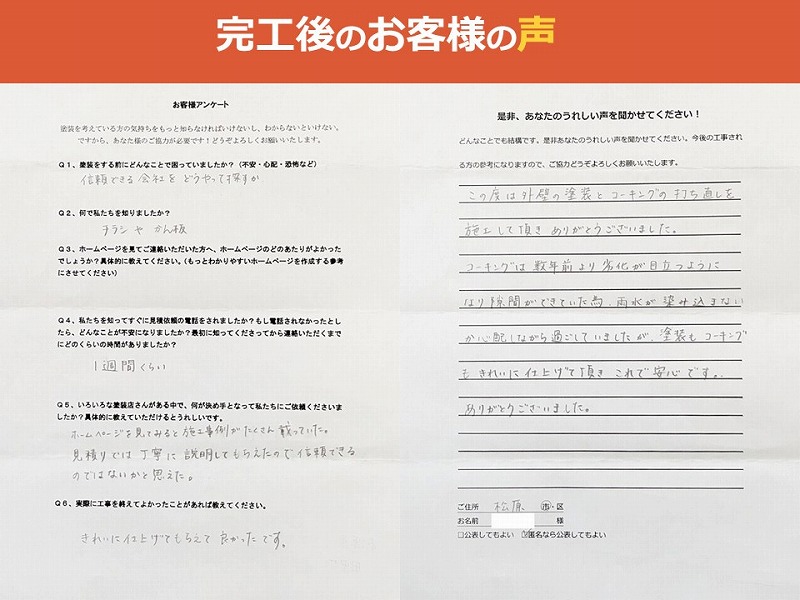 完工後のお客様の声
お客様アンケート
塗装を考えている方の気持ちをもっと知らなければいけないし、わからないといけない。
ですから、あなた様のご協力が必要です！どうぞよろしくお願いいたします。
Q１、塗装をする前にどんなことで困っていましたか？（不安・心配・恐怖など）
信頼できる会社をどうやって探すか
Q２、何で私たちを知りましたか？
チラシやかん板
Q３、ホームページを見てご連絡いただいた方へ、ホームページのどのあたりがよかった
でしょうか？具体的に教えてください。（もっとわかりやすいホームページを作成する参考
にさせてください）
Q４、私たちを知ってすぐに見積依頼の電話をされましたか？もし電話されなかったとし
たら、どんなことが不安になりましたか？最初に知ってくださってから連絡いただくまで
にどのくらいの時間がありましたか？
1週間くらい
Q５、いろいろな塗装店さんがある中で、何が決め手となって私たちにご依頼くださいま
したか？具体的に教えていただけるとうれしいです。
ホームページを見てみると施工事例がたくさん載っていた。
見積りでは丁寧に説明してもらえたので信頼できる
のではないかと思えた。
Q６、実際に工事を終えてよかったことがあれば教えてください。
きれいに仕上げてもらえて良かったです。
是非、あなたのうれしい声を聞かせてください！
どんなことでも結構です。是非あなたのうれしい声を聞かせてください。今後の工事され
る方の参考になりますので、ご協力どうぞよろしくお願いいたします。
この度は外壁の塗装とコーキングの打ち直しを
施工して頂きありがとうございました。
コーキングは数年前より劣化が目立つように
なり隙間ができていた為、雨水が染み込まない
か心配しながら過ごしていましたが、塗装もコーキング
もきれいに仕上げて頂きこれで安心です。
ありがとうございました。
ご住所 松原 市・区
お名前 様
□公表してもよい ☑匿名なら公表してもよい